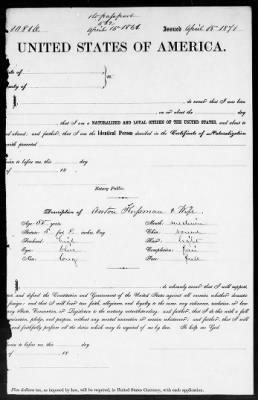 Issued April 18 1871
UNITED STATES OF AMERICA.
State of
of
ss:
I, do swear that I was born
, on or about the day
, that I am a NATURALIZED AND LOYAL CITIZEN OF THE UNITED STATES, and about to
travel abroad; and further, that I am the Identical Person described in the Certificate of Naturalization
herewith presented.
Sworn to before me, this day
of 18
Notary Public.
Description of Anton & Wife.
Age: years Mouth: medium
Stature: 5 ft 8 inches, Eng. Chin: round
Forehead: high Hair:
Eyes: blue Complexion: fair
Nose: long Face: full
I, do solemnly swear that I will support,
protect, and defend the Constitution and Government of the United States against all enemies, whether domestic
or foreign; and that I will bear true faith, allegiance, and loyalty to the same, any ordinance, resolution, or law
of any State, Convention, or Legislature to the contrary notwithstanding; and further, that I do this with a full
determination, pledge, and purpose, without any mental reservation or evasion whatsoever; and further, that I will
well and faithfully perform all the duties which may be required of me by law. So help me God.
Sworn to before me, this day
of 18
Five dollars tax, as imposed by law, will be required, in United States Currency, with each application.